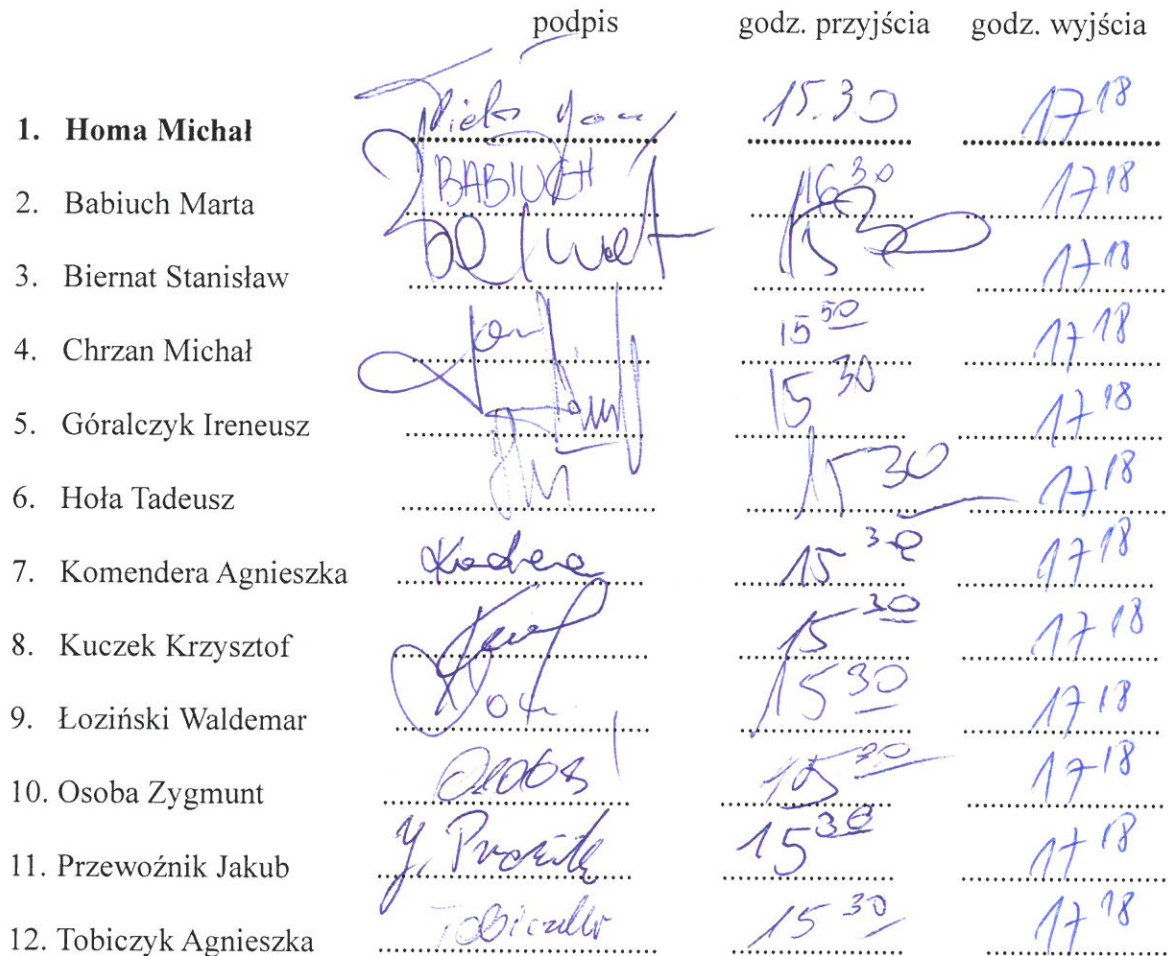 podpis godz. przyjścia godz. wyjścia
1. Homa Michał 15.30 17 18
2. Babiuch Marta BABIUCH 16 30 17 18
3. Biernat Stanisław 15 30 17 18
4. Chrzan Michał 15 50 17 18
5. Góralczyk Ireneusz 15 30 17 18
6. Hoła Tadeusz 15 30 17 18
7. Komendera Agnieszka 15 30 17 18
8. Kuczek Krzysztof 15 30 17 18
9. Łoziński Waldemar 15 30 17 18
10. Osoba Zygmunt 15 30 17 18
11. Przewoźnik Jakub 15 30 17 18
12. Tobiczyk Agnieszka 15 30 17 18